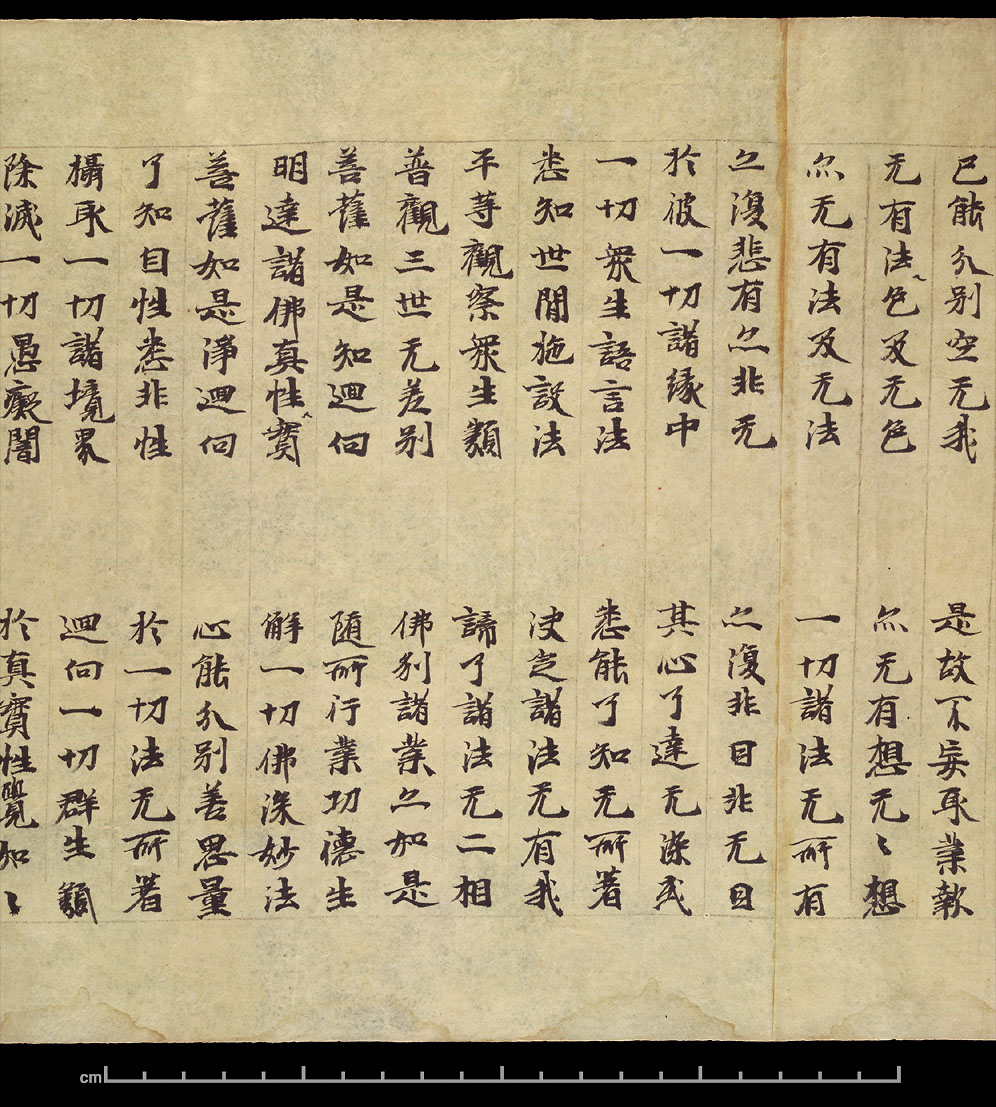 已能分别空无我　是故不妄取業報
无有法色及无色　亦无有想无〻想
亦无有法及无法　一切諸法无所有
亦復悲有亦非无　亦復非因非无因
於彼一切諸緣中　其心了達无染或
一切衆生語言法　悉能了知无所著
悉知世間施設法　决定諸法无有我
平等觀察衆生類　諦了諸法无二相
普觀三世无差别　佛刹諸業亦如是
菩薩如是知迴向　隨所行業功德生
明達諸佛真性實　解一切佛深妙法
菩薩如是淨迴向　心能分别善思量
了知自性悉非性　於一切法无所著
攝取一切諸境界　迴向一切群生類
除滅一切愚癡闇　於真實性覺如〻
cm